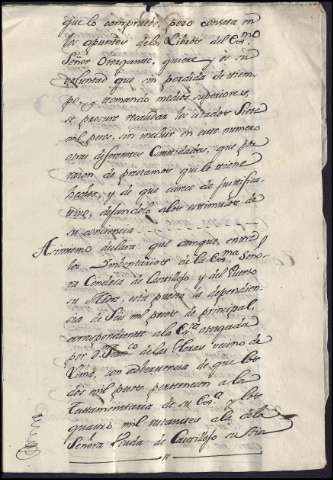 que lo compruebe, pero consta en
los apuntes de los Libros del Exmo
Señor Otorgante, quiere y es su
voluntad que sin perdida de tiem-
po, y tomando medios superiores,
se procure realizar los citados Siete
mil pesos, sin incluir en este numero
otras diferentes Cantidades, que
de prestamos que le tiene
hechos, y de que carece de justifica-
tivo, dejandolo al testimonio de
su conciencia
Asimismo declara que aunque entre
los Inventarios de la Exma Seño-
ra Condesa de Castillejo y del Puerto
su Madre, está puesta la dependen-
cia de Seis mil pesos de principal,
correspondiente a la Esra otorgada
por Dn Franco de las Heras vecino de
con advertencia de que los
dos mil pesos pertenecen a la
Testamentaria de su Exa y los
quatro mil restantes a la de la
Señora Viuda de Castillejo su Tia